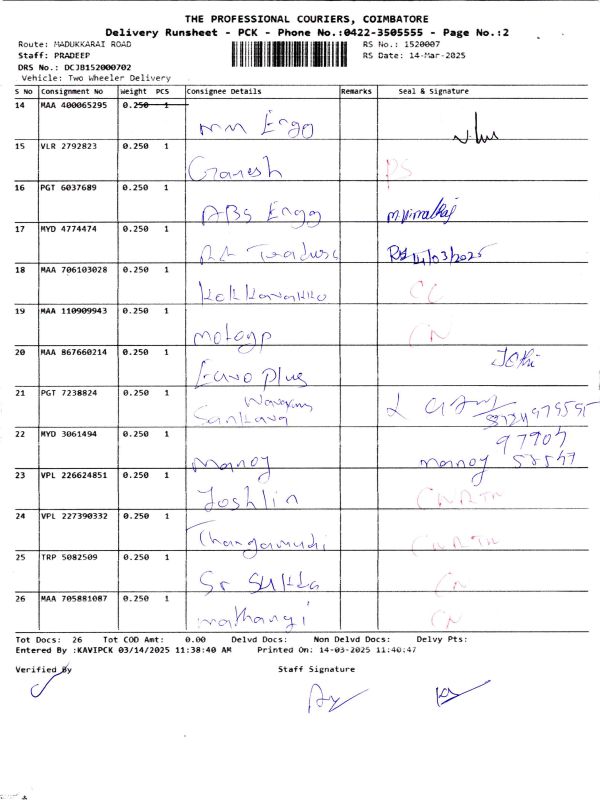 THE PROFESSIONAL COURIERS, COIMBATORE
Delivery Runsheet - PCK - Phone No.:0422-3505555 - Page No.:2
Route: MADUKKARAI ROAD RS No.: 1520007
Staff: PRADEEP RS Date: 14-Mar-2025
DRS No.: DCJB152000702
Vehicle: Two Wheeler Delivery
S No Consignment No Weight PCS Consignee Details Remarks Seal & Signature
14 MAA 400065295 0.250 1
mm Ergo
15 VLR 2792823 0.250 1
Ganesh PS
16 PGT 6037689 0.250 1
ABS Engg M.Vimalraj
17 MYD 4774474 0.250 1
14/03/2025
18 MAA 706103028 0.250 1
CC
19 MAA 110909943 0.250 1
motogp CN
20 MAA 867660214 0.250 1
Euro plus
21 PGT 7238824 0.250 1
Sankara
22 MYD 3061494 0.250 1
97907
manoj manoj
23 VPL 226624851 0.250 1
Joshlin CNRTN
24 VPL 227390332 0.250 1
CNRTN
25 TRP 5082509 0.250 1
Sr CN
26 MAA 705881087 0.250 1
mathangi CN
Tot Docs: 26 Tot COD Amt: 0.00 Delvd Docs: Non Delvd Docs: Delvy Pts:
Entered By :KAVIPCK 03/14/2025 11:38:40 AM Printed On: 14-03-2025 11:40:47
Verified By Staff Signature